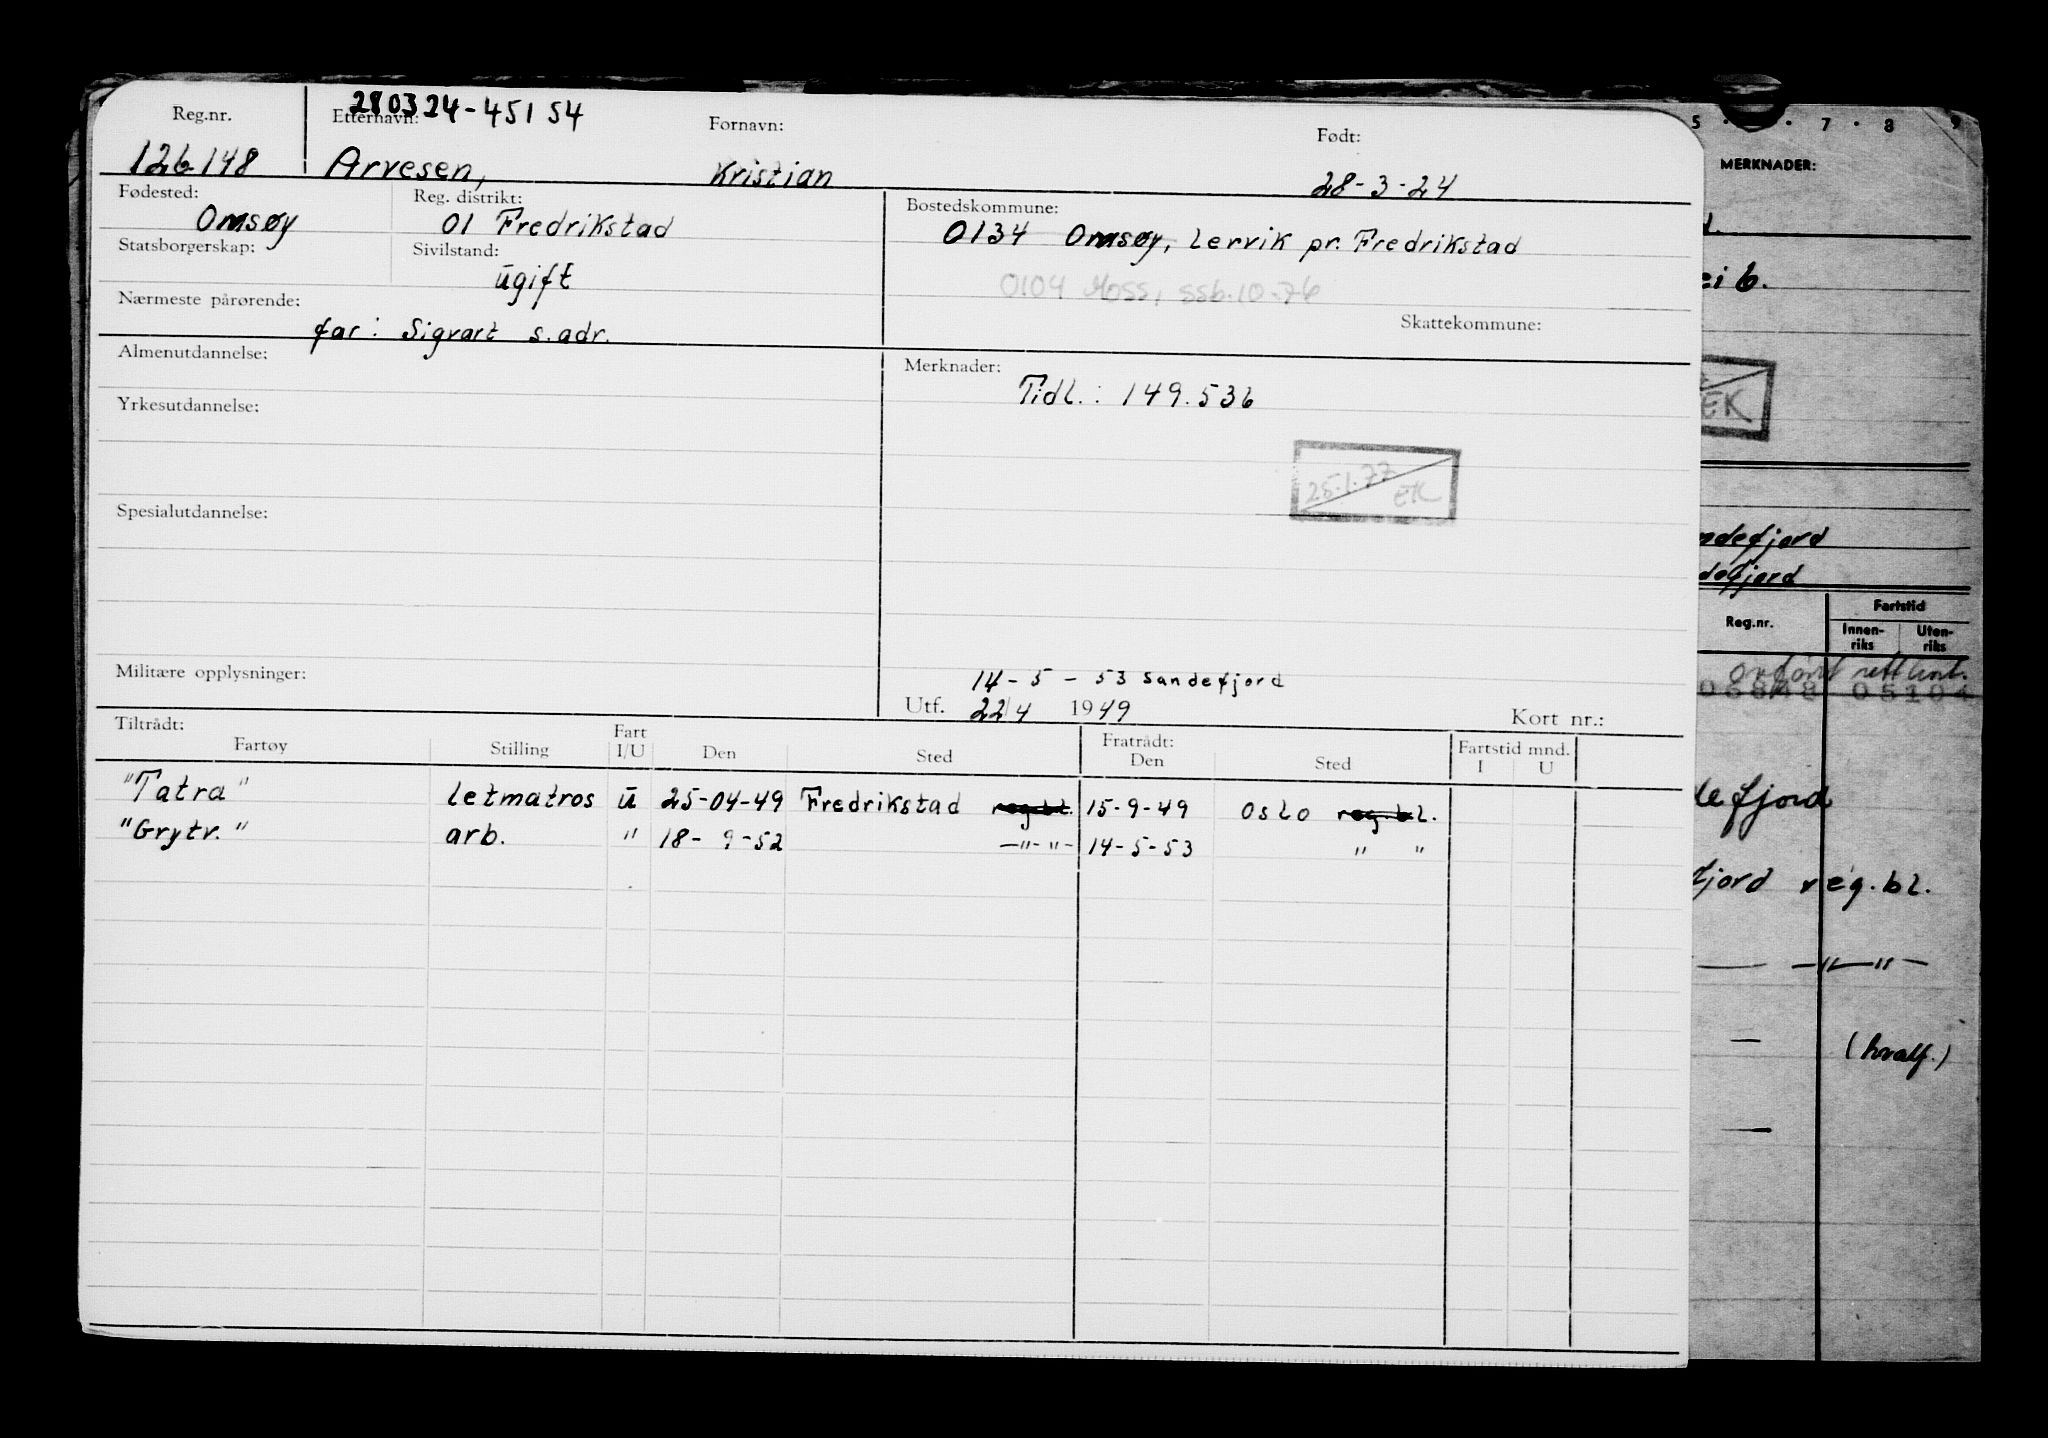 280324-45154
Reg.nr. Etternavn: Fornavn: Født:
126148 Arvesen, Kristian 28-3-24
Fødested: Reg. distrikt: Bostedskommune:
Omsøy 01 Fredrikstad 0134 Omsøy, Lervik pr. Fredrikstad
Statsborgerskap: Sivilstand:
ugift 0104 Moss, ssb.10-76
Nærmeste pårørende: Skattekommune:
far: Sigvart s.adr.
Almenutdannelse: Merknader:
Tidl.: 149.536
Yrkesutdannelse:
25.1.77 EK
Spesialutdannelse:
Militære opplysninger: 14-5-53 Sandefjord
Utf. 22/4 1949 Kort nr.:
Tiltrådt: Fratrådt:
Fartøy Stilling Fart I/U Den Sted Den Sted Fartstid mnd. I U
"Tatra" letmatros u 25-04-49 Fredrikstad reg.bl. 15-9-49 Oslo reg.bl.
"Grytv." arb. " 18-9-52 —"-"- 14-5-53 " "
5 7 8 9
MERKNADER:
ei 6.
EK
ndefjord
defjord
Reg.nr. Fartstid
Innen-riks Uten-riks
05104
defjord
fjord reg.bl.
— —"—"—
— (hvalf.)
—